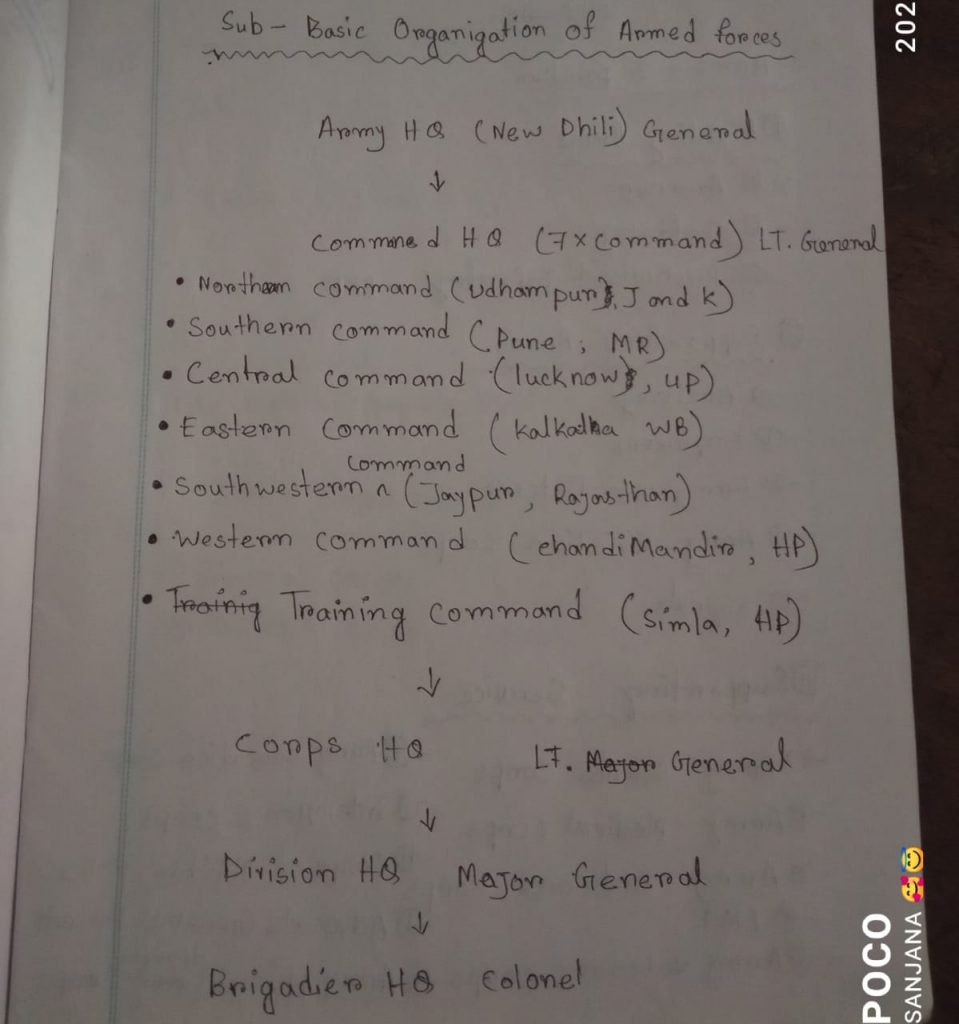 Sub - Basic Organigation of Armed forces
Army HQ (New Dhili) General
↓
Commned HQ (7x command) LT. General
• Northern command (Udhampur, J and K)
• Southern command (Pune, MR)
• Central command (lucknow, UP)
• Eastern Command (kalkatha WB)
command
• Southwestern ^ (Jaypur, Rajasthan)
• Western command (chandiMandir, HP)
• Trainig Training command (Simla, HP)
↓
Corps HQ LT. Major General
↓
Division HQ Major General
↓
Brigadier HQ Colonel
202
POCO
SANJANA 🥰😇